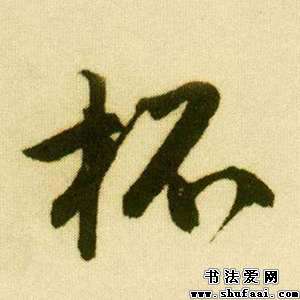 杯
书法爱网
www.shufaai.com